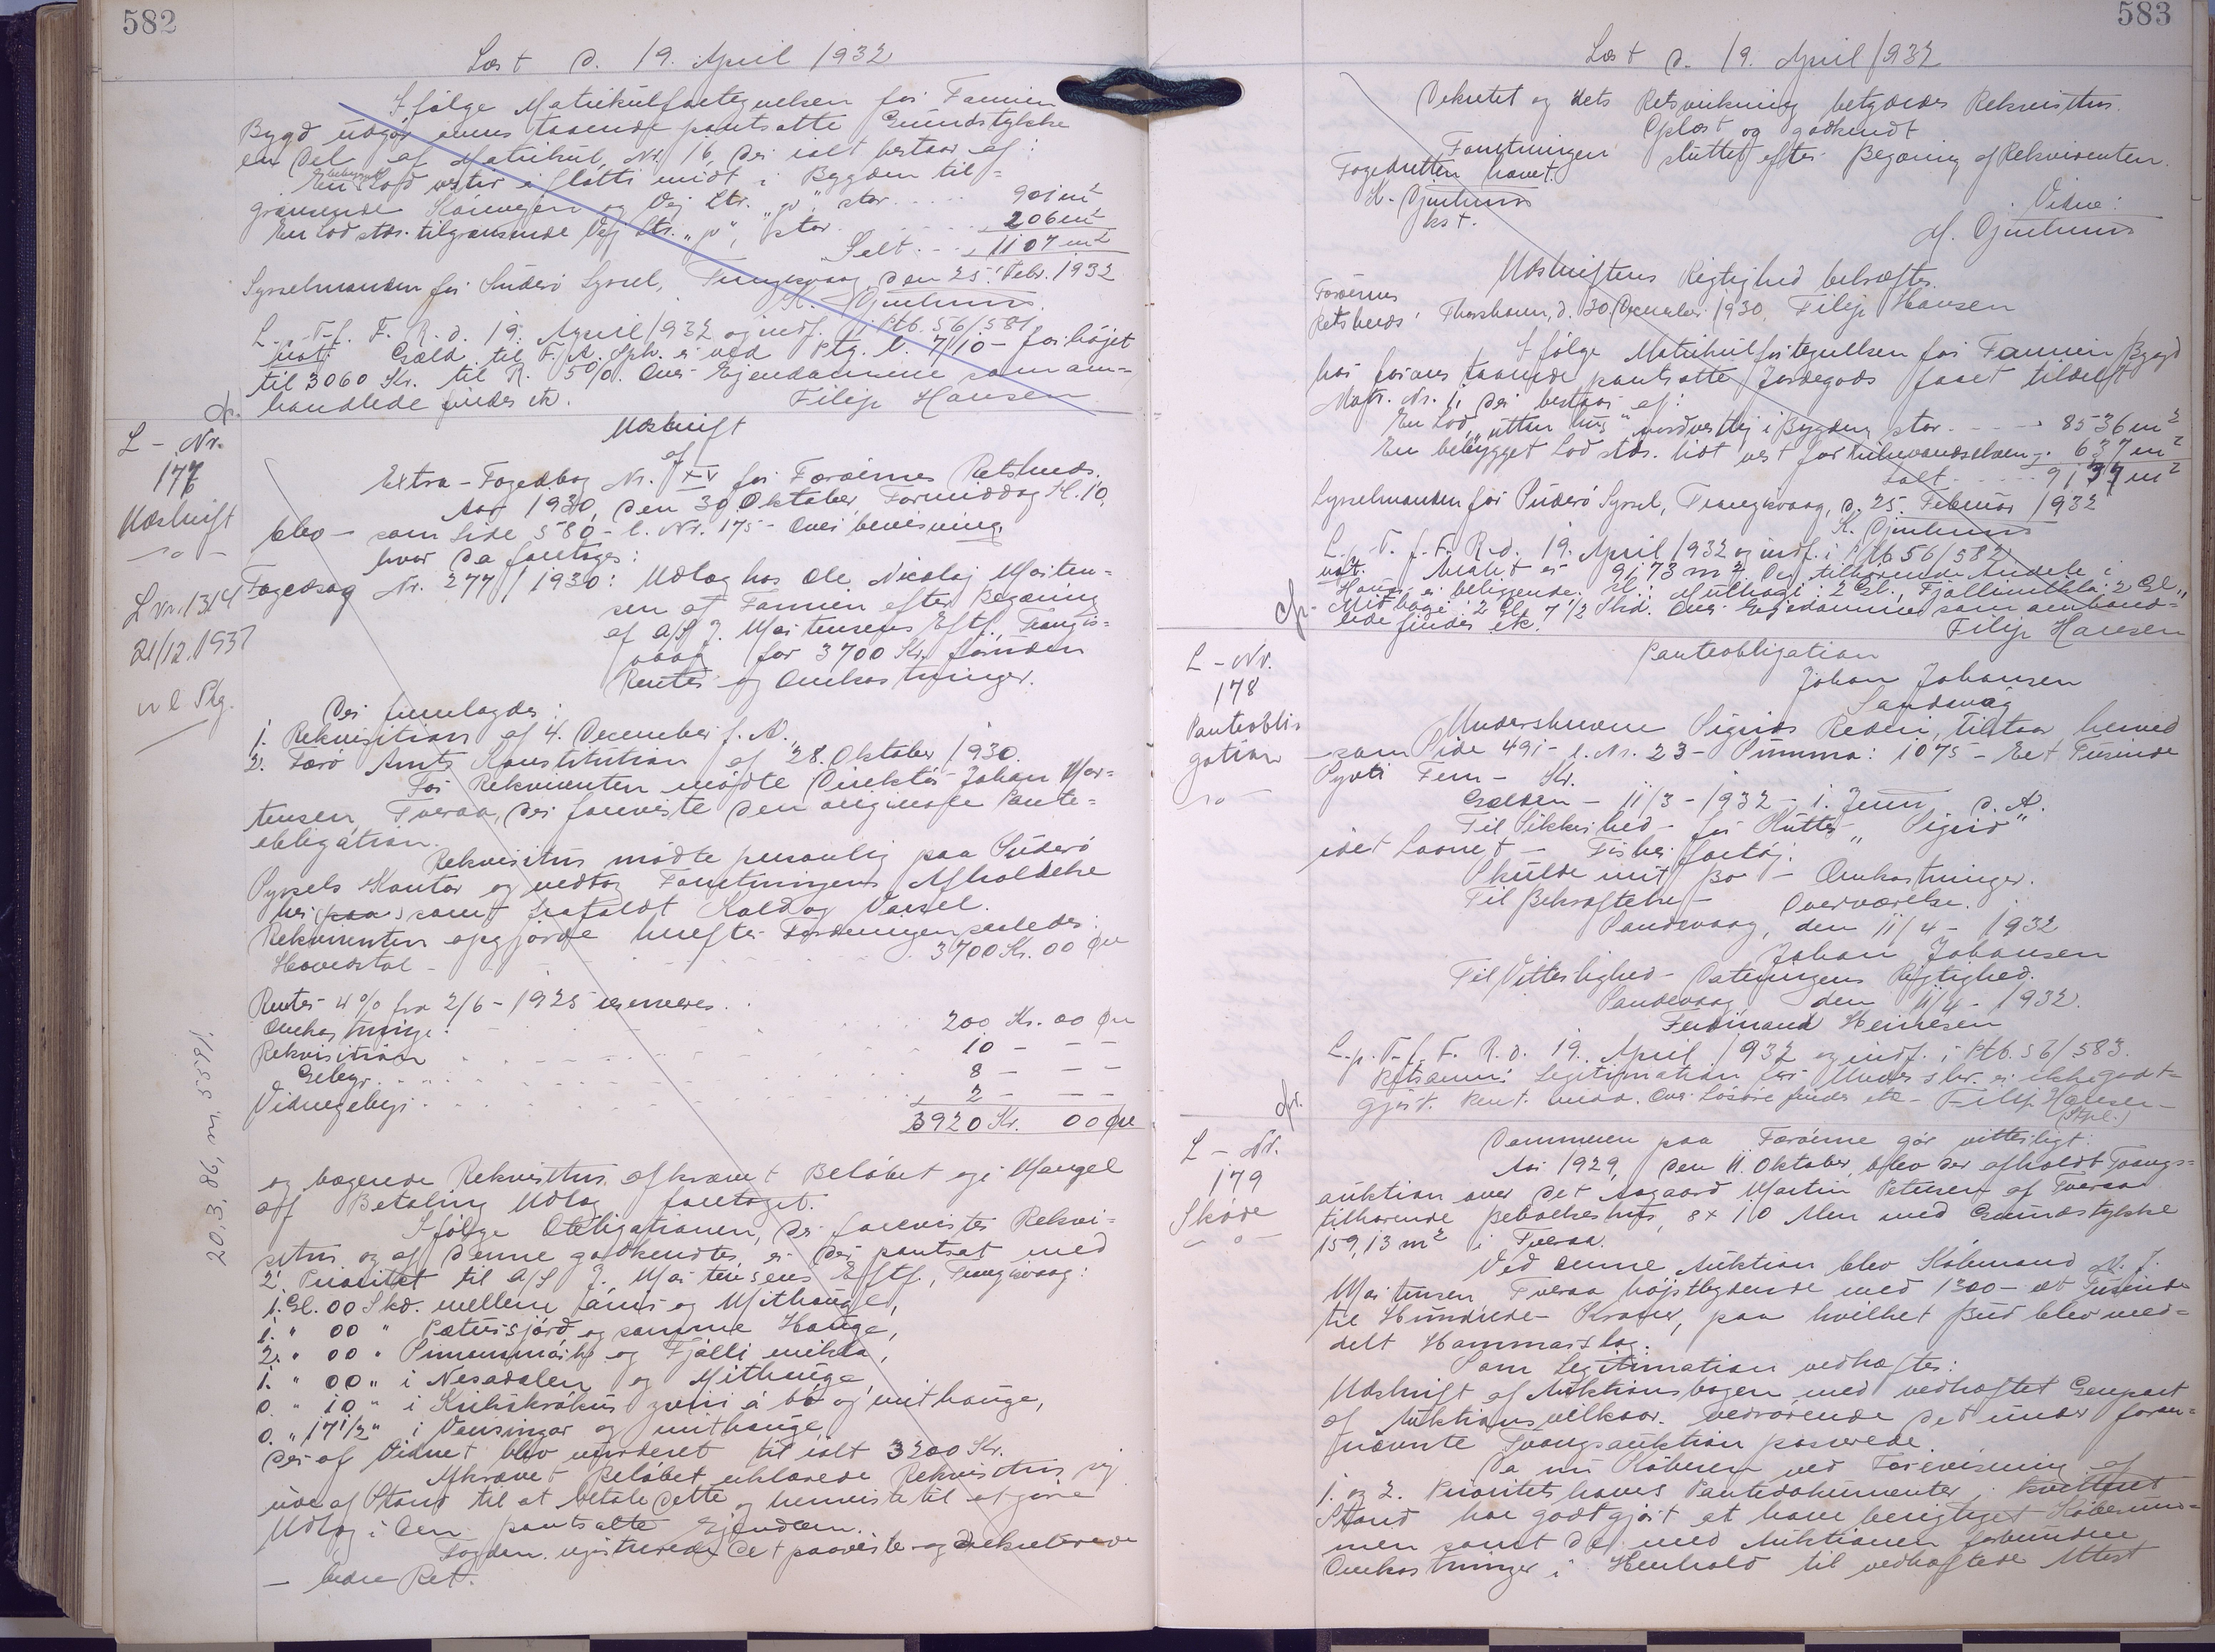 582
Læst d. 19. April 1932
Ifølge Matrikulfortegnelsen for Famien
Bygd udgør ovennævnte pantsatte Grundstykke
en Del af Matrikul Nr. 16, der ialt bestaar af:
En bebygget Lod vestur i flötti midt i Bygden til=
grænsende Kóngvegin og Vej Ltr. "p", stor ..... 901 m²
En Lod stds. tilgrænsende Vej Ltr. "p", stor ..... 206 m²
Ialt ... 1107 m²
Sysselmanden for Suderø Syssel, Trangisvaag, den 25. Febr. 1932
K. Djurhuus.
L. p. T. f. F. R. d. 19. April 1932 og indf. i Ptb. 56/581
not. Gæld til F. A. Sph. er ved Ptg. l. 7/10 - forhøjet
til 3060 Kr. til R. 5%. Over Ejendommene som om=
handlede findes ik.
Filip Hansen
cfr.
L - Nr.
177
Udskrift
L Nr. 1314
21/12.1937
20,3,86, nr 555/1.
Udskrift
af
Extra-Fogedbog Nr. XV for Færøernes Retskreds.
Aar 1930, den 30 Oktober, Formiddag Kl. 10,
blev - som Side 580 - l. Nr. 175 - Overbevisning,
hvor da foretoges:
Fogedsag Nr. 277/1930: Udlæg hos Ole Nicolaj Morten=
sen af Famien efter Begæring
af A/S J. Mortensens Eftf., Trangis=
vaag for 3700 Kr. foruden
Renter og Omkostninger.
Der fremlagdes:
1. Rekvisition af 4. December f. A.
2. Færø Amts Konstitution af 28. Oktober 1930.
For Rekvirenten mødte Direktør Johan Mor=
tensen, Tveraa, der foreviste den originale Pante=
obligation.
Rekvisitus mødte personlig paa Suderø
Syssels Kontor og vedtog Forretningens Afholdelse
her (paa) samt frafaldt Kald og Varsel.
Rekvirenten opgjorde herefter Fordringen saaledes:
Hovedstol - ..... 3700 Kr. 00 Øre
Renter 4% fra 2/6 - 1925 reserveres.
Omkostninger ..... 200 Kr. 00 Øre
Rekvisition ..... 10 - - -
Gebyr ..... 8 - - -
Vidnegebyr ..... 2 - - -
3920 Kr. 00 Øre
og begærede Rekvisitus afkrævet Beløbet og i Mangel
af Betaling Udlæg foretaget.
Ifølge Obligationen, der forevistes Rekvi=
situs og af denne godkendtes, er der pantsat med
2. Prioritet til A/S J. Mortensens Eftf., Trangisvaag:
1. Gl. 00 Skd. mellem Jánis og Mithauge,
1. " 00 " Pætursjørd og samme Hauge,
2. " 00 " og Fjalli mikla,
1. " 00 " i Nesadalen og Mithauge,
0. " 10 " i Krikskrókur yviri á bø og mithauge,
0. " 17 1/2 " i og mithauge,
der af Vidnet blev vurderet til ialt 3200 Kr.
Afkrævet Beløbet erklærede Rekvisitus sig
ude af Stand til at betale dette og henviste til at gøre
Udlæg i den pantsatte Ejendom.
Fogden registrerede det paaviste og dekreterede
- bedre Ret.
583
Læst d. 19. April 1932
Dekretet og dets Retsvirkning betydedes Rekvisitus.
Oplæst og godkendt
Forretningen sluttet efter Begæring af Rekvirenten.
Fogedretten hævet.
K. Djurhuus
kst.
Vidne:
M. Djurhuus
Udskriftens Rigtighed bekræftes.
Færøernes
Retskreds' Thorshavn, d. 30. December 1930. Filip Hansen
Ifølge Matrikulfortegnelsen for Famien Bygd
har foranstaaende pantsatte Jordegods faaet tildelt
Matr. Nr. 1, der bestaar af:
En Lod "uttan húg" nordvestlig i Bygden, stor ..... 8536 m²
En bebygget Lod stds. lidt vest for ..... 637 m²
Ialt ..... 9173 m²
Sysselmanden for Suderø Syssel, Trangisvaag, d. 25. Februar 1932
K. Djurhuus
L. p. T. f. F. R. d. 19. April 1932 og indf. i Ptb 56/582
not. Arealet er 9173 m². De tilhørende Andele i
Hauge er beliggende Kl.: Mulhagi: 2 Gl., Fjallimikla: 2 Gl.,
Mithagi: 2 Gl. 7 1/2 Skd. Over Ejendommene som omhand=
lede findes ik.
Filip Hansen
cfr.
L - Nr.
178
Panteobli=
gation
Panteobligation
Johan Johansen
Sandevág
Underskrevne Sigrids Rederi, tilstaar herved
- som Side 491 - l. Nr. 23 - Summa: 1075 - Eet Tusinde
Syvti Fem - Kr.
Gælden - 11/3 - 1932 - 1. Juni d. A.
Til Sikkerhed - for Kutter "Sigrid"
idet Laanet - Fiskerfartøj.
Skulde mit Bo - Omkostninger.
Til Bekræftelse - Overværelse.
Sandevaag, den 11/4 - 1932
Johan Johansen
Til Vitterlighed - Dateringens Rigtighed.
Sandevaag, den 11/4 - 1932.
Ferdinand Heinesen
L. p. T. f. F. R. d. 19. April 1932 og indf. i Ptb. 56/583.
Retsanm: Legitimation for Underskr. er ikke godt=
gjort. Over Løsøre findes ik - Filip Hansen -
(Stpl.)
cfr.
L - Nr.
179
Skøde
Dommeren paa Færøerne gør vitterligt:
Aar 1929, den 11. Oktober, blev der afholdt Tvangs=
auktion over det Aagaard Martin Petersen af Tveraa
tilhørende Beboelseshus, 8 x 10 Alen med Grundstykke
159,13 m² i Tveraa.
Ved denne Auktion blev Købmand M. J.
Mortensen Tveraa højstbydende med 1200 - et Tusinde
to Hundrede - Kroner, paa hvilket Bud blev med=
delt Hammerslag.
Som Legitimation vedhæftes:
Udskrift af Auktionsbogen med vedhæftet Genpart
af Auktionsvilkaar vedrørende det under foran=
nævnte Tvangsauktion passerede.
Da nu Køberen ved Forevisning af
1. og 2. Prioritetshavers Pantedokumenter i kvitteret
Stand har godtgjort at have berigtiget Købesum=
men samt de med Auktionen forbundne
Omkostninger i Henhold til vedhæftede Attest